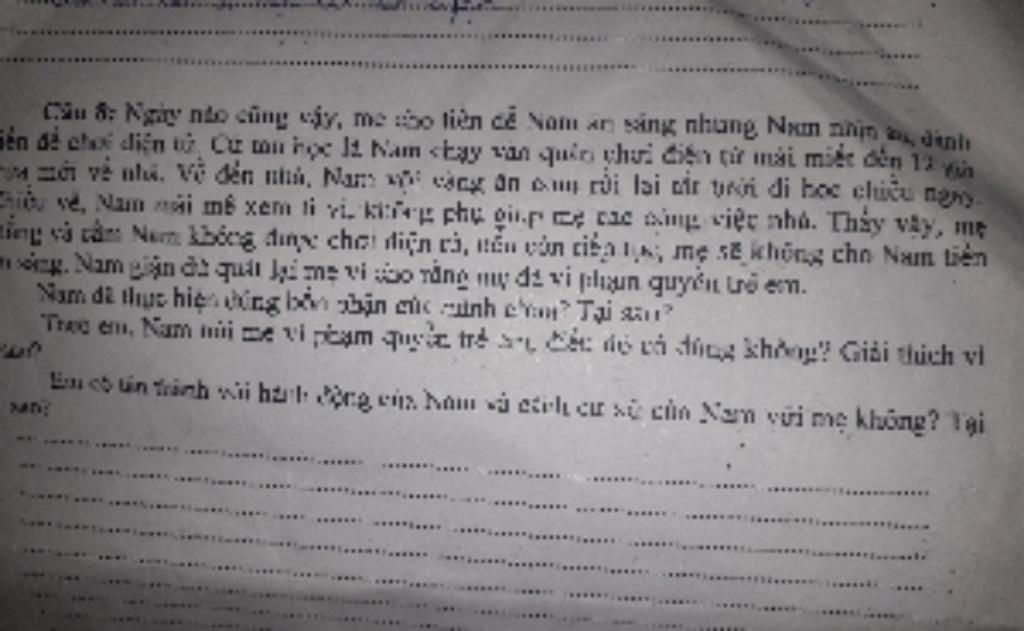 Câu 8: Ngày nào cũng vậy, mẹ cho tiền để Nam ăn sáng nhưng Nam nhịn ăn, dành
tiền để chơi điện tử. Cứ tan học là Nam chạy vào quán chơi điện tử mải miết đến 12 giờ
trưa mới về nhà. Về đến nhà, Nam vội vàng ăn cơm rồi lại tức tưởi đi học chiều ngay.
Chiều về, Nam mải mê xem ti vi, không phụ giúp mẹ các công việc nhà. Thấy vậy, mẹ
và cấm Nam không được chơi điện tử, nếu còn tiếp tục, mẹ sẽ không cho Nam tiền
ăn sáng. Nam giận dữ quát lại mẹ vì cho rằng mẹ đã vi phạm quyền trẻ em.
Nam đã thực hiện đúng bổn phận của mình chưa? Tại sao?
Theo em, Nam nói mẹ vi phạm quyền trẻ em, điều đó có đúng không? Giải thích vì
sao?
Em có tán thành với hành động của Nam và cách cư xử của Nam với mẹ không? Tại
sao?